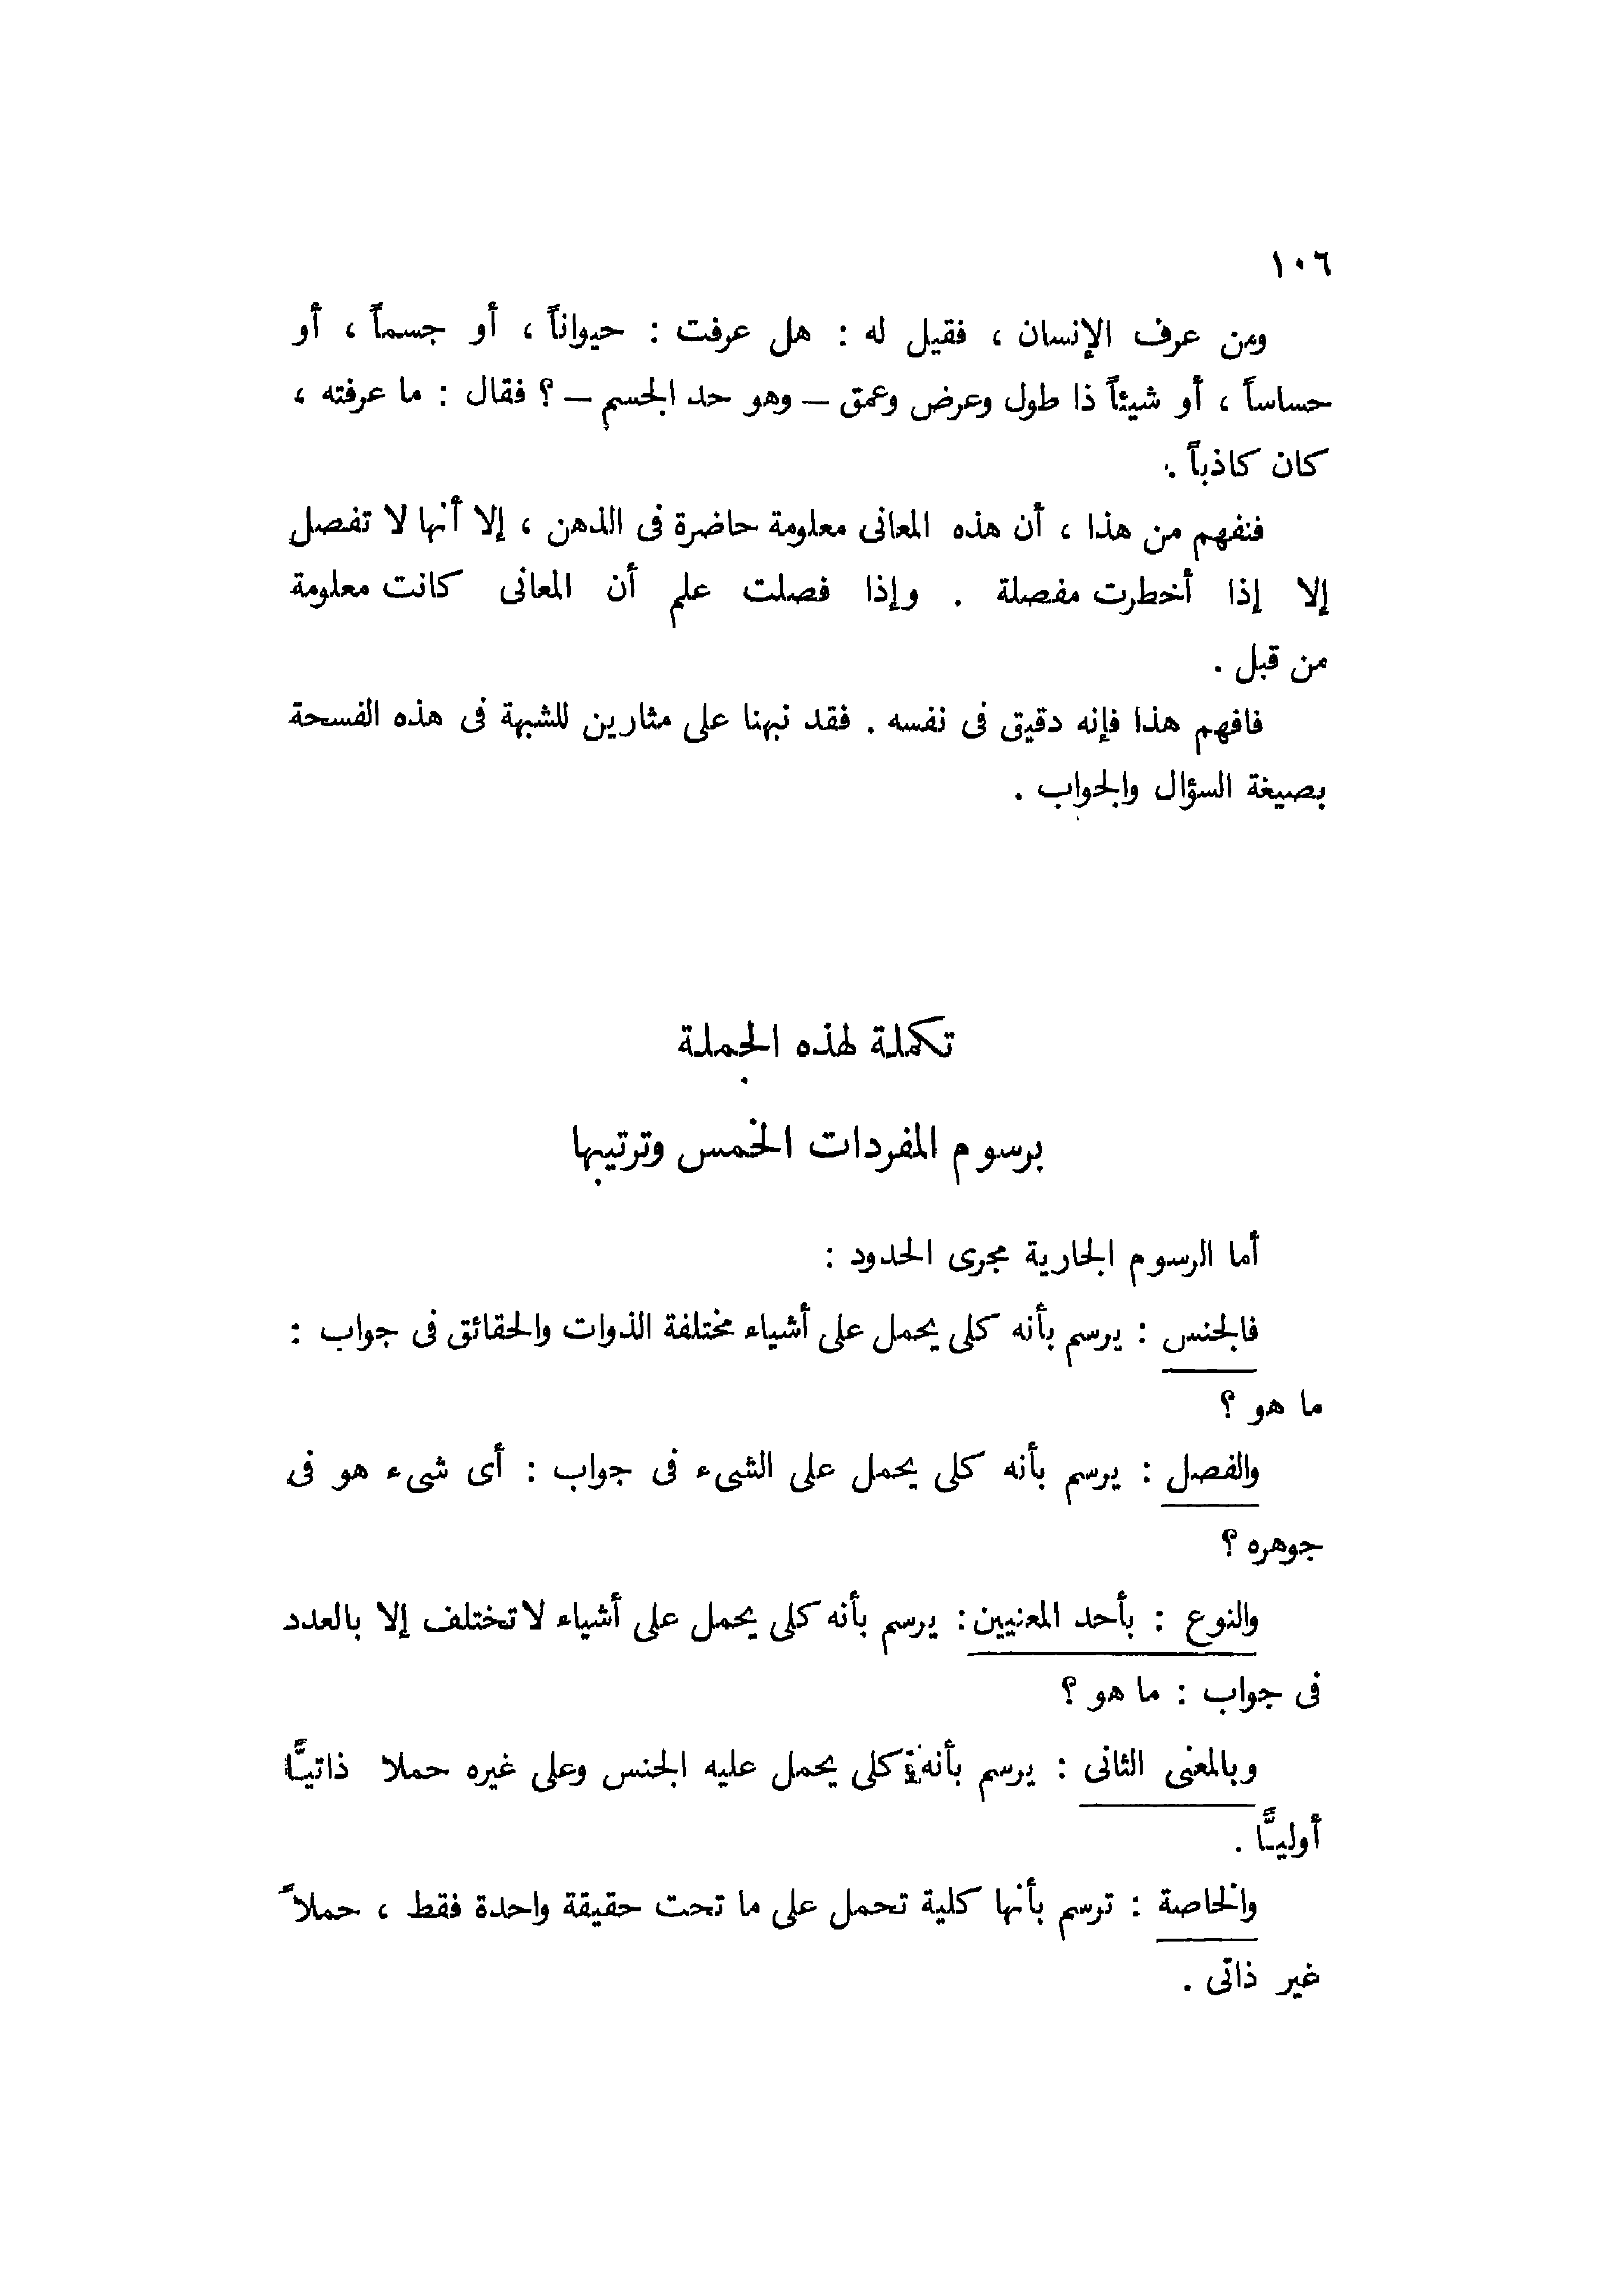 ١٠٦
ومن عرف الإنسان ، فقيل له : هل عرفت : حيواناً ، أو جسماً ، أو
حساساً ، أو شيئاً ذا طول وعرض وعمق – وهو حد الجسم – ؟ فقال : ما عرفته ،
كان كاذباً .
فنفهم من هذا ، أن هذه المعانى معلومة حاضرة فى الذهن ، إلا أنها لا تفصل
إلا إذا أخطرت مفصلة . وإذا فصلت علم أن المعانى كانت معلومة
من قبل .
فافهم هذا فإنه دقيق فى نفسه . فقد نبهنا على مثارين للشبهة فى هذه الفسحة
بصيغة السؤال والجواب .
تكملة لهذه الجملة
برسوم المفردات الخمس وترتيبها
أما الرسوم الجارية مجرى الحدود :
فالجنس : يرسم بأنه كلى يحمل على أشياء مختلفة الذوات والحقائق فى جواب :
ما هو ؟
والفصل : يرسم بأنه كلى يحمل على الشىء فى جواب : أى شىء هو فى
جوهره ؟
والنوع : بأحد المعنيين : يرسم بأنه كلى يحمل على أشياء لا تختلف إلا بالعدد
فى جواب : ما هو ؟
وبالمعنى الثانى : يرسم بأنه كلى يحمل عليه الجنس وعلى غيره حملا ذاتيًّا
أوليًّا .
والخاصة : ترسم بأنها كلية تحمل على ما تحت حقيقة واحدة فقط ، حملاً
غير ذاتى .